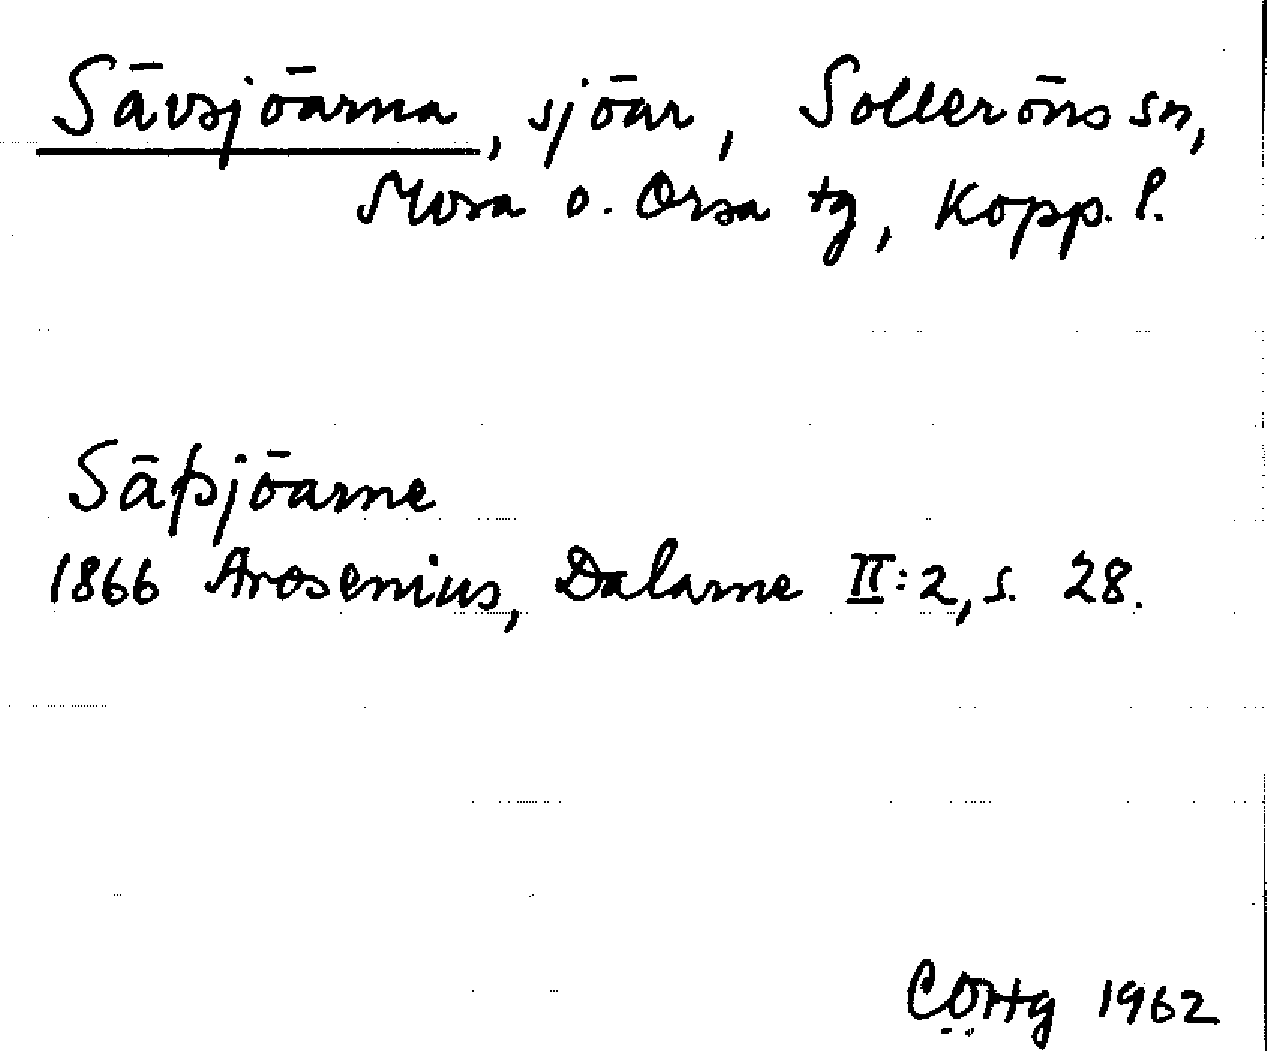 Sävsjöarna, sjöar, Solleröns sn,
Mora o. Orsa tg, Kopp. l.
Säfsjöarne
1866 Arosenius, Dalarne II:2, s. 28.
1962